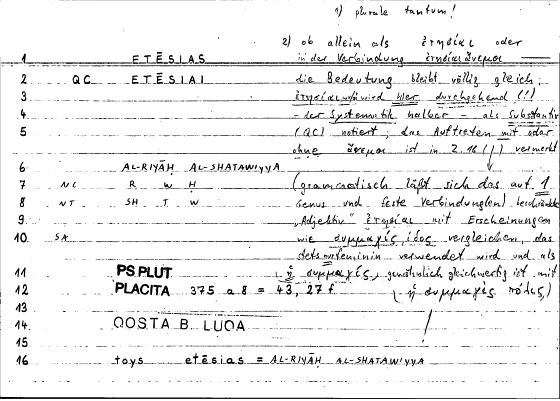 1) plurale tantum!
2) ob allein als ἐτησίαι oder
1 ETĒSIAS in der Verbindung ἐτησίαι ἄνεμοι
2 QC ETĒSIAI die Bedeutung bleibt völlig gleich;
3 ἐτησίαι wird hier durchgehend (!!)
4 - der Systematik halber - als Substantiv
5 (QC) notiert; das Auftreten mit oder
ohne ἄνεμοι ist in Z. 16 vermerkt
6 AL-RIYĀḤ AL-SHATAWIYYA
7 NC R W H (grammatisch läßt sich das auf 1
8 NT SH T W Genus und feste Verbindung(en) beschränkte
9 "Adjektiv" ἐτησίαι mit Erscheinungen
10 SA wie συμμαχίς, ίδος vergleichen, das
stets feminin verwendet wird und als
11 PS.PLUT ἡ συμμαχίς, gleichwertig ist mit
12 PLACITA 375 a 8 = 43, 27 f. ἡ συμμαχὶς πόλις)
13
14 QOSTA B. LUQA
15
16 toys etēsias = AL-RIYĀḤ AL-SHATAWIYYA